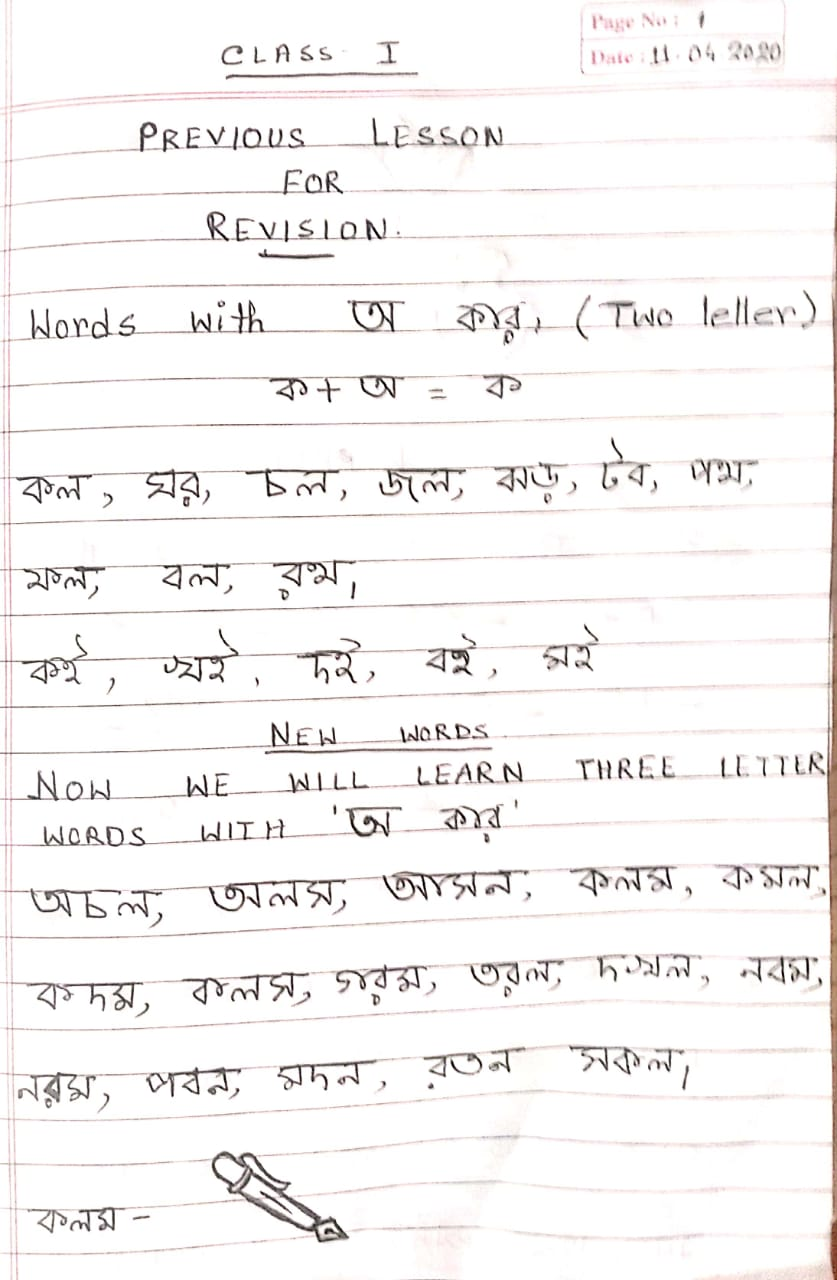 Page No: 1
CLASS I
Date: 11.04.2020
PREVIOUS LESSON
FOR
REVISION.
Words with অ কার, (Two letter)
ক + অ = ক
কল, ঘর, চল, জল, ঝড়, টব, পথ,
ফল, বল, রথ,
কই, খই, দই, বই, মই
NEW WORDS
NOW WE WILL LEARN THREE LETTER
WORDS WITH 'অ কার'
অচল, অলস, আসন, কলম, কমল,
কদম, কলস, গরম, তরল, দখল, নবম,
নরম, পবন, মদন, রতন সকল,
কলম -